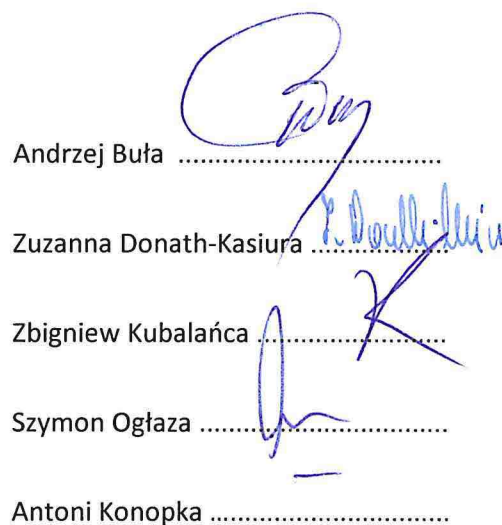 Andrzej Buła ..........................................
Zuzanna Donath-Kasiura ......................
Zbigniew Kubalańca ...............................
Szymon Ogłaza .......................................
Antoni Konopka .....................................